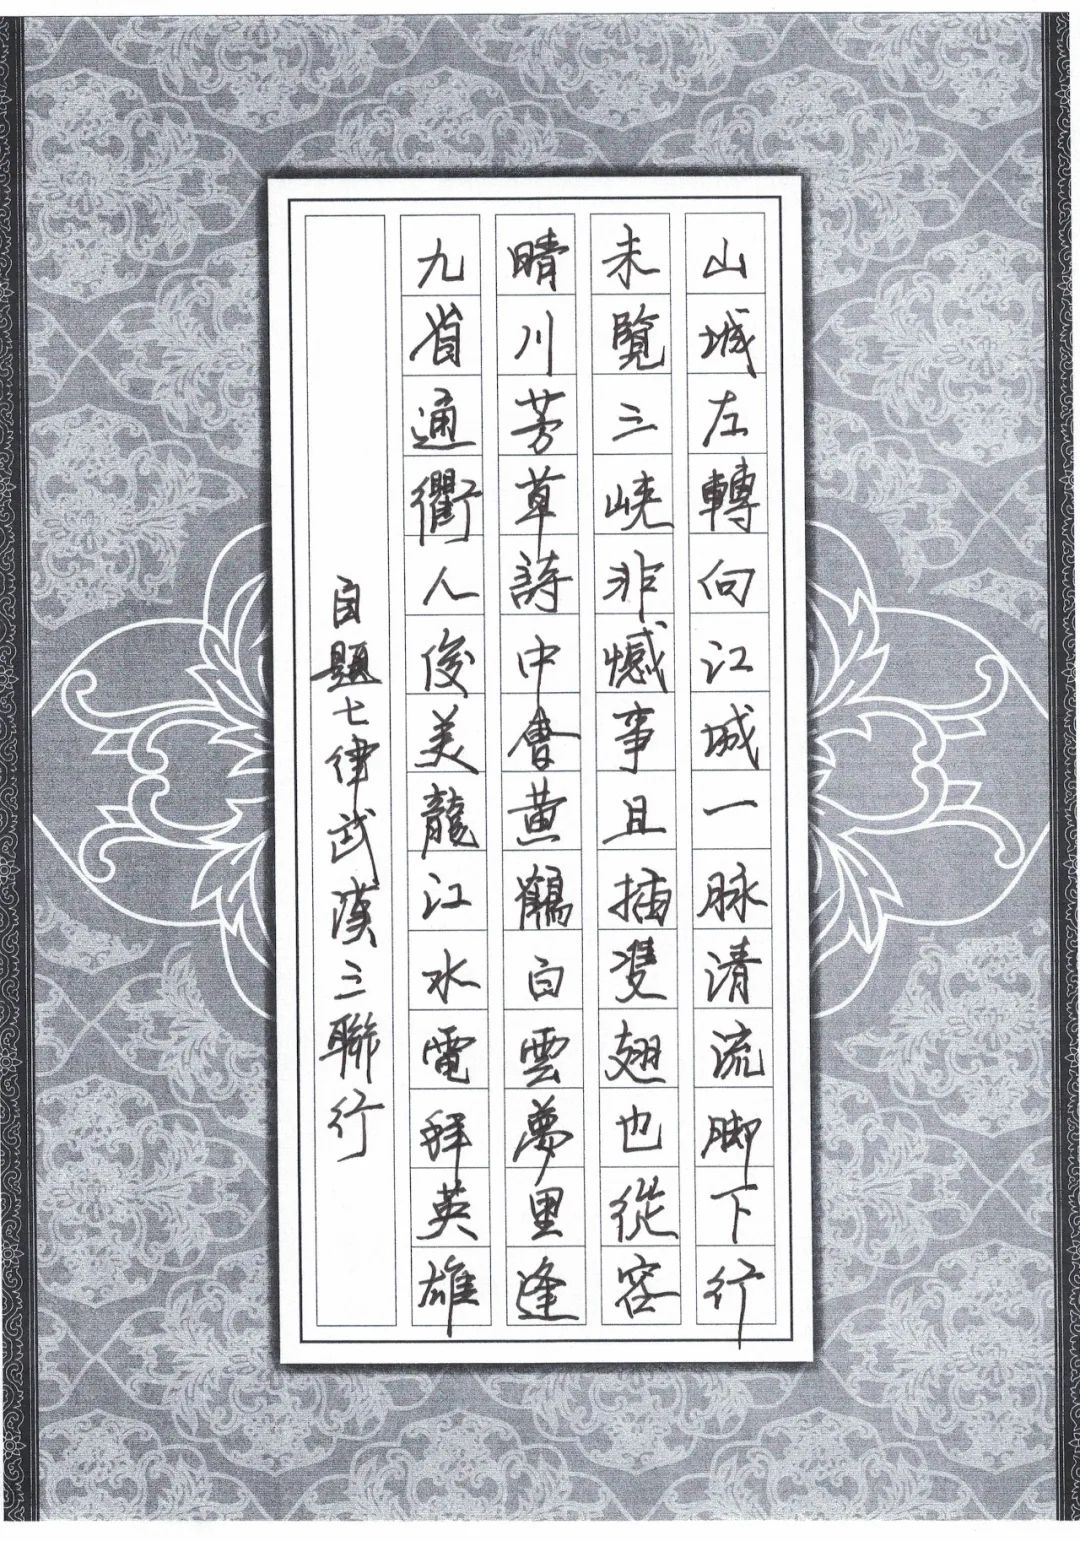 山城左轉向江城一脉清流脚下行
未覽三峽非憾事且插雙翅也從容
晴川芳草詩中會黃鶴白雲夢里逢
九省通衢人俊美龍江水電拜英雄
自題七律武漢三聯行